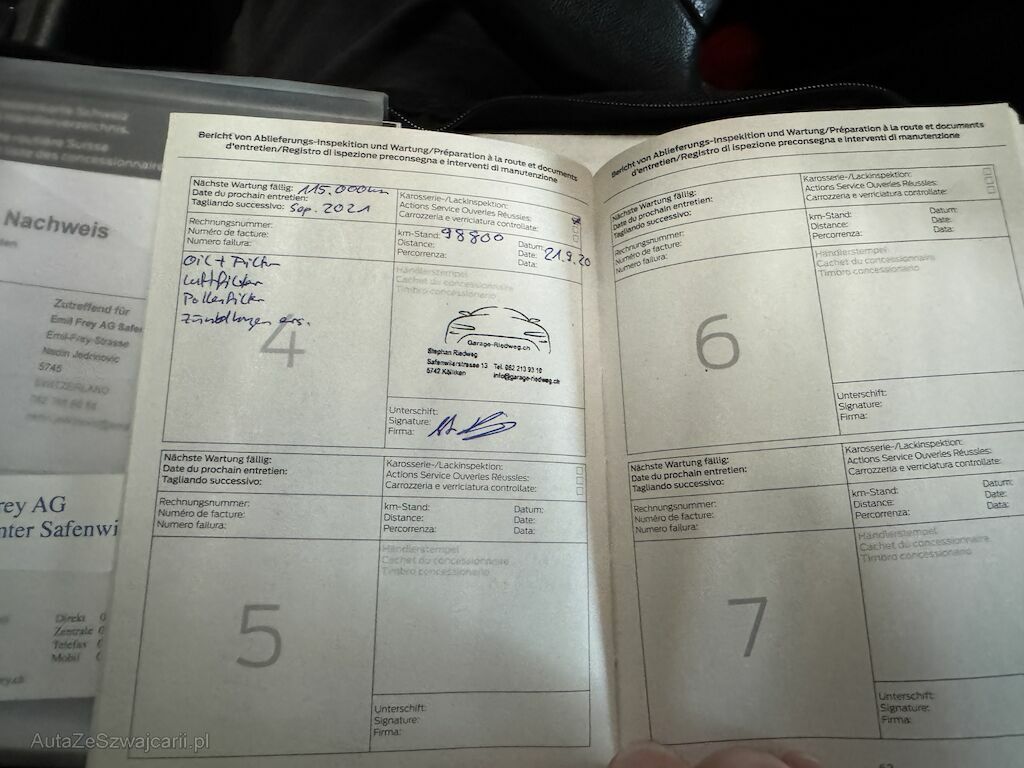 Nachweis
Zutreffend für
Emil Frey AG Safen
Emil-Frey-Strasse
5745
SWITZERLAND
rey AG
nter Safenwi
Direkt
Zentrale
Telefax
Mobil
Bericht von Ablieferungs-Inspektion und Wartung/Préparation à la route et documents
d'entretien/Registro di ispezione preconsegna e interventi di manutenzione
Nächste Wartung fällig: 115.000km
Date du prochain entretien:
Tagliando successivo: Sep. 2021
Karosserie-/Lackinspektion:
Actions Service Ouveries Réussles:
Carrozzeria e verriciatura controllate:
Rechnungsnummer:
Numéro de facture:
Numero failura:
km-Stand: 98800
Distance:
Percorrenza:
Datum:
Date: 21.9.20
Data:
Oil + Filter
Luftfilter
Pollenfilter
4
Händlerstempel
Cachet du concessionnaire
Timbro concessionario
Garage-Riedweg.ch
Stephan Riedweg
Safenwilerstrasse 13 Tel. 062 213 93 10
5742 Kölliken info@garage-riedweg.ch
Unterschift:
Signature:
Firma:
Nächste Wartung fällig:
Date du prochain entretien:
Tagliando successivo:
Karosserie-/Lackinspektion:
Actions Service Ouveries Réussles:
Carrozzeria e verriciatura controllate:
Rechnungsnummer:
Numéro de facture:
Numero failura:
km-Stand:
Distance:
Percorrenza:
Datum:
Date:
Data:
5
Händlerstempel
Cachet du concessionnaire
Timbro concessionario
Unterschift:
Signature:
Firma:
Bericht von Ablieferungs-Inspektion und Wartung/Préparation à la route et documents
d'entretien/Registro di ispezione preconsegna e interventi di manutenzione
Nächste Wartung fällig:
Date du prochain entretien:
Tagliando successivo:
Karosserie-/Lackinspektion:
Actions Service Ouveries Réussles:
Carrozzeria e verriciatura controllate:
Rechnungsnummer:
Numéro de facture:
Numero failura:
km-Stand:
Distance:
Percorrenza:
Datum:
Date:
Data:
6
Händlerstempel
Cachet du concessionnaire
Timbro concessionario
Unterschift:
Signature:
Firma:
Nächste Wartung fällig:
Date du prochain entretien:
Tagliando successivo:
Karosserie-/Lackinspektion:
Actions Service Ouveries Réussles:
Carrozzeria e verriciatura controllate:
Rechnungsnummer:
Numéro de facture:
Numero failura:
km-Stand:
Distance:
Percorrenza:
Datum:
Date:
Data:
7
Händlerstempel
Cachet du concessionnaire
Timbro concessionario
Unterschift:
Signature:
Firma:
AutaZeSzwajcarii.pl